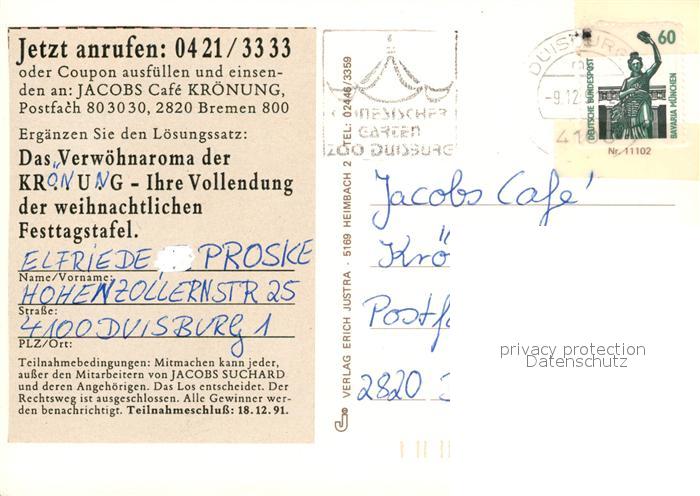 Jetzt anrufen: 04 21 / 33 33
oder Coupon ausfüllen und einsen-
den an: JACOBS Café KRÖNUNG,
Postfach 80 30 30, 2820 Bremen 800
Ergänzen Sie den Lösungssatz:
Das Verwöhnaroma der
KRÖNUNG – Ihre Vollendung
der weihnachtlichen
Festtagstafel.
ELFRIEDE PROSKE
Name/Vorname:
HOHENZOLLERNSTR 25
Straße:
4100 DUISBURG 1
PLZ/Ort:
Teilnahmebedingungen: Mitmachen kann jeder,
außer den Mitarbeitern von JACOBS SUCHARD
und deren Angehörigen. Das Los entscheidet. Der
Rechtsweg ist ausgeschlossen. Alle Gewinner wer-
den benachrichtigt. Teilnahmeschluß: 18.12.91.
VERLAG ERICH JUSTRA · 5169 HEIMBACH 2 · TEL: 02446/3359
CHINESISCHER
GARTEN
ZOO DUISBURG
DUISBURG
-9.12.9
4100
60
DEUTSCHE BUNDESPOST
BAVARIA MÜNCHEN
Nr. 11102
Jacobs Café
Krö
Postf
2820
privacy protection
Datenschutz